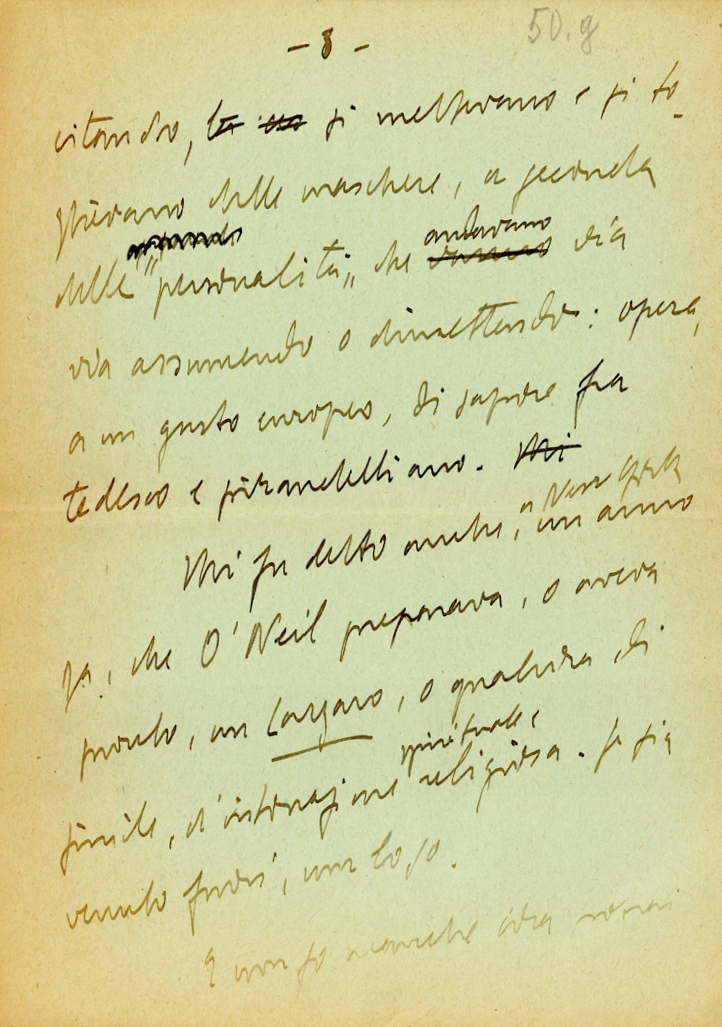 - 8 -
50.g
citando, si mettevano e si to-
glievano delle maschere, a seconda
andavano
delle "personalità" che via
via assumendo o dimettendo: opera,
a un gusto europeo, di sapore fra
tedesco e pirandelliano. Mi
a New York
Mi fu detto anche, un anno
fa, che O'Neil preparava, o aveva
pronto, un Lazzaro, o qualcosa di
spirituale e
simile, d'intonazione religiosa. Se sia
venuto fuori, non lo so.
E non so neanche